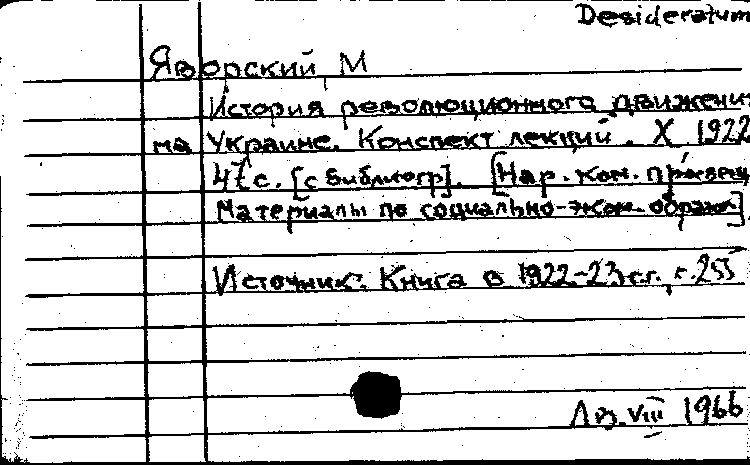 Desideratum
Яворский, М
История революционного движени
на Украине. Конспект лекций. X 1922
47 с. [с библиогр]. [Нар. ком. просвещ
Материалы по социально-эконом. образов].
Источник: Книга в 1922-23 г.г., с. 255
Лв. VIII 1966